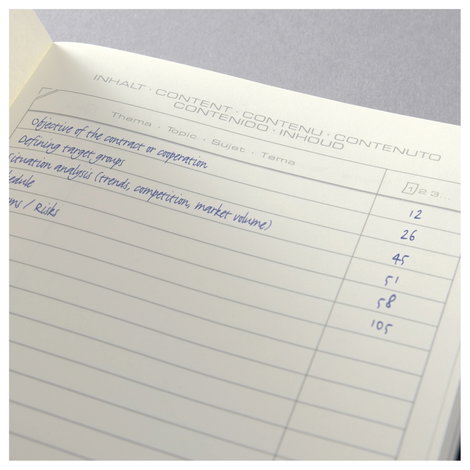 INHALT · CONTENT · CONTENU · CONTENUTO
CONTENIDO · INHOUD
Thema · Topic · Sujet · Tema
1 2 3...
Objective of the contract or cooperation 12
Defining target groups 26
situation analysis (trends, competition, market volume) 45
hedule 51
/ Risks 58
105